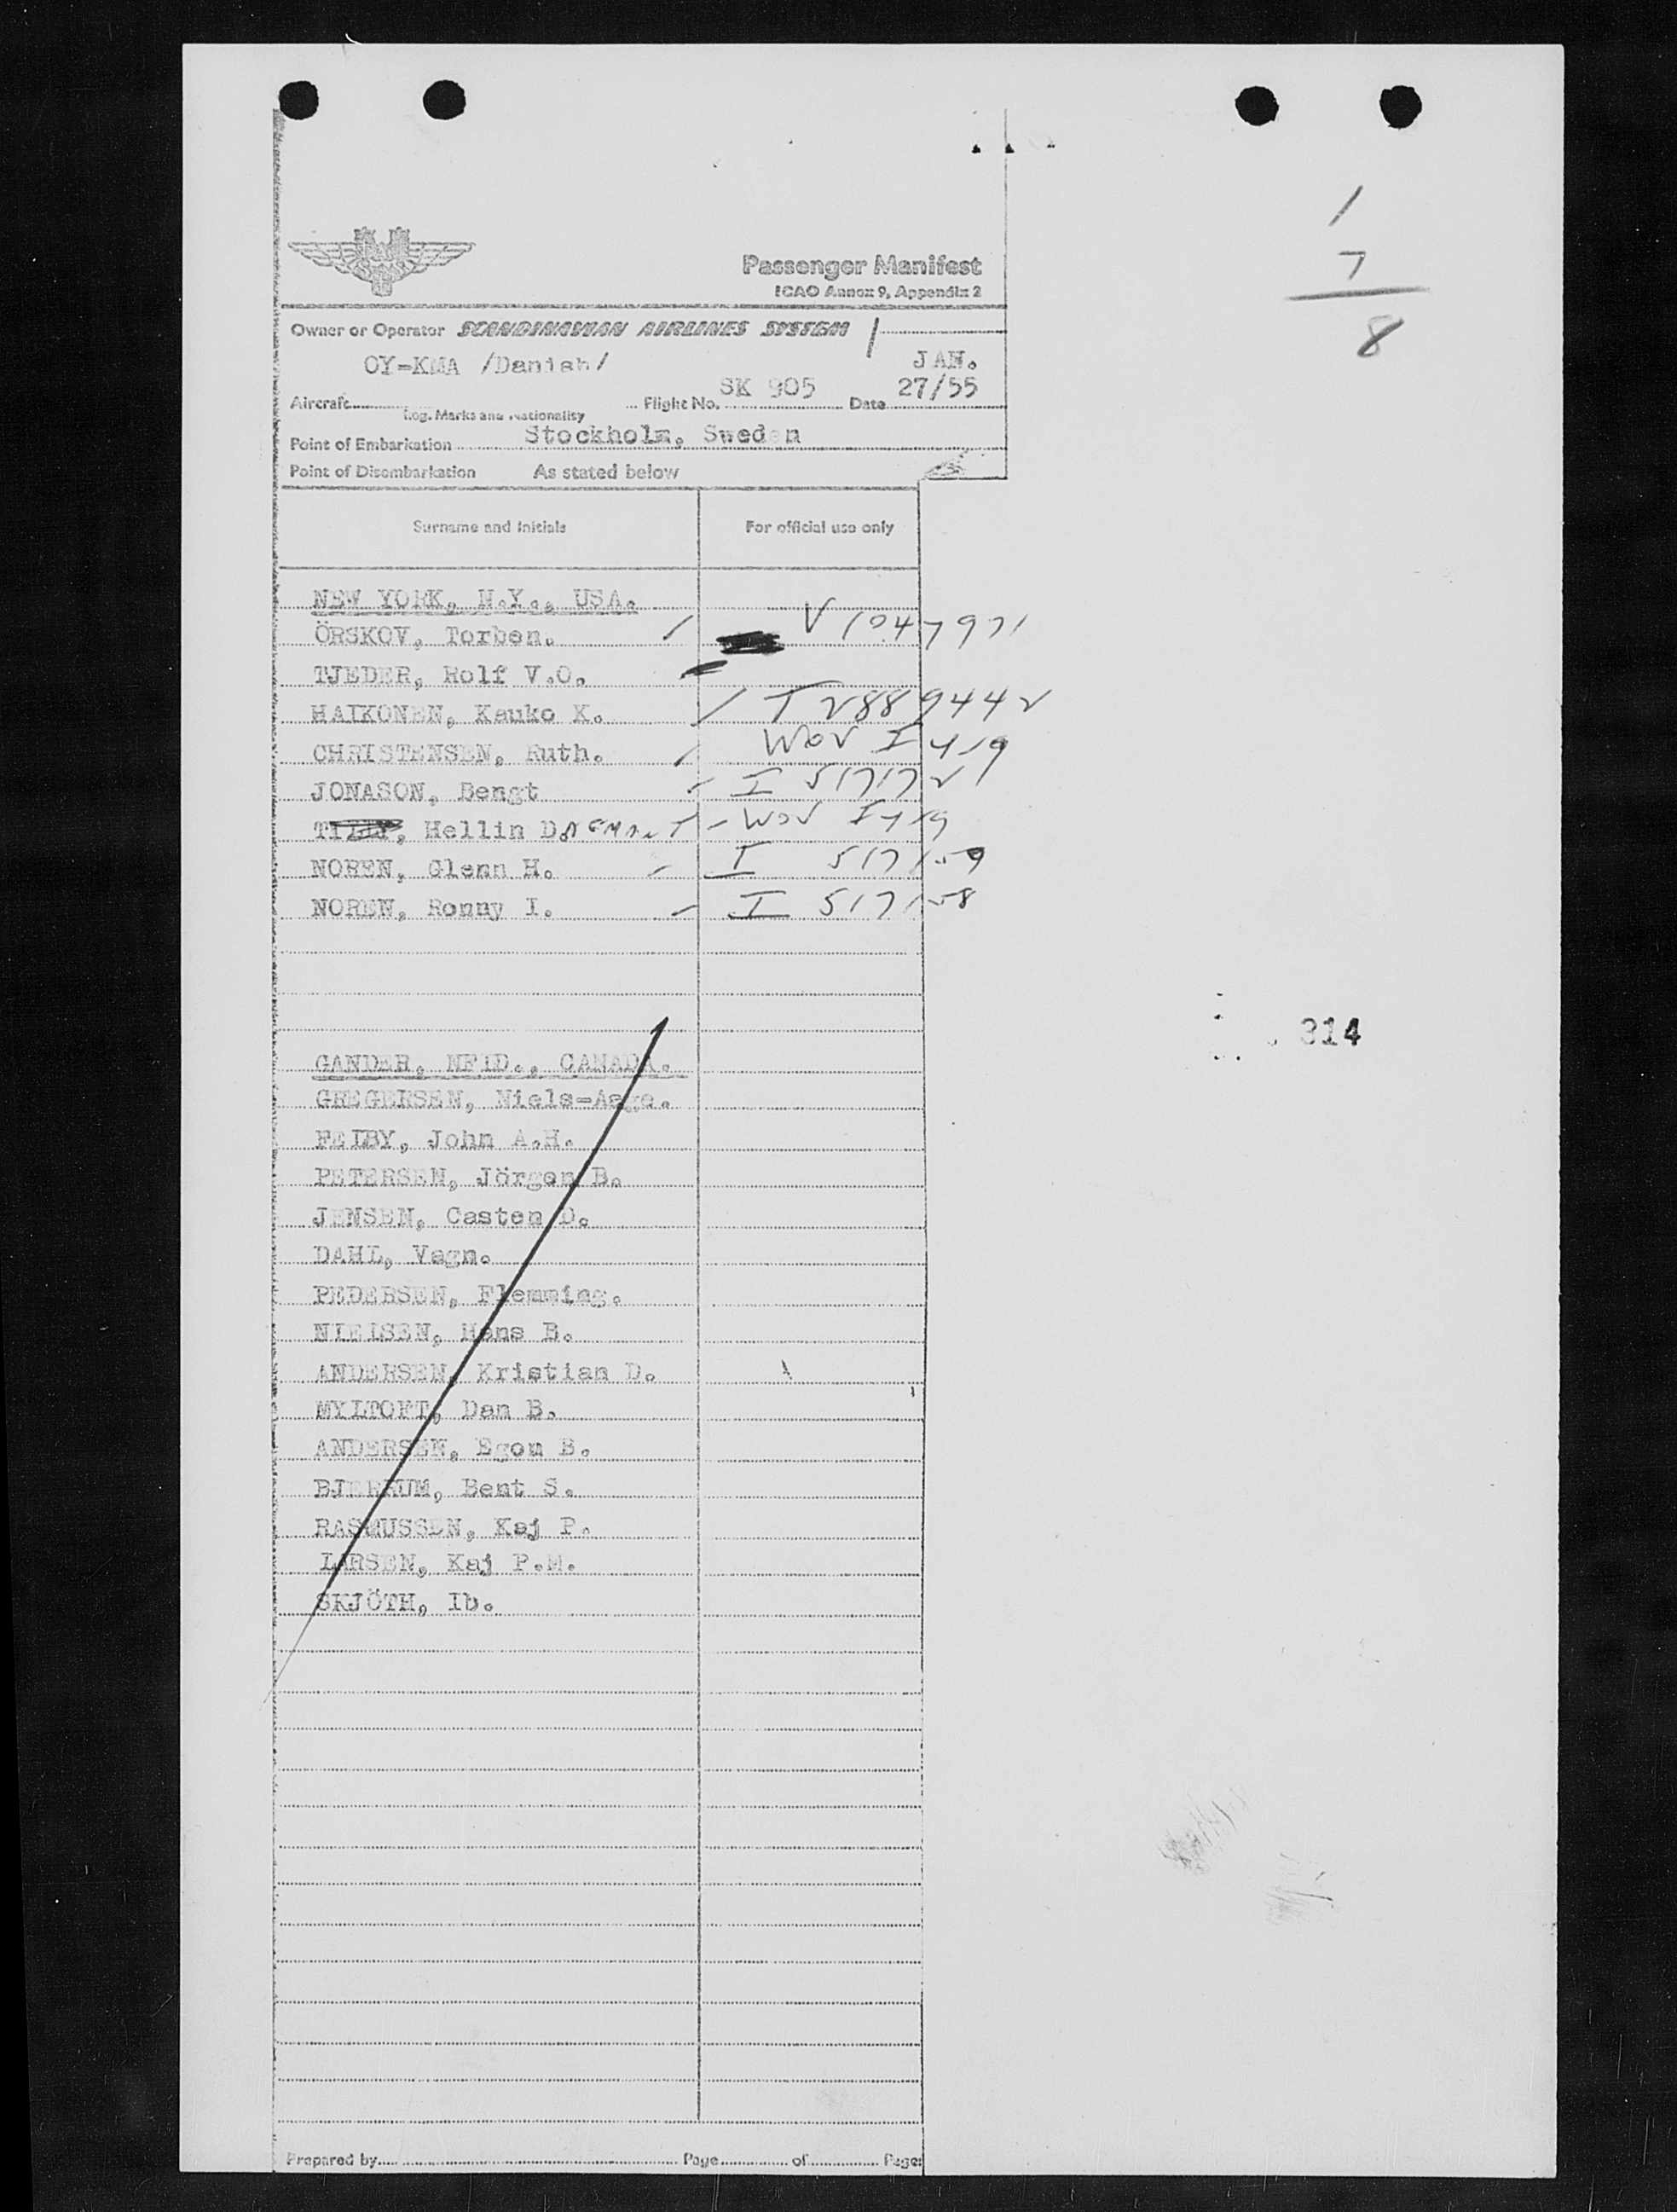 1
7
8
Passenger Manifest
ICAO Annex 9, Appendix 2
Owner or Operator SCANDINAVIAN AIRLINES SYSTEM
OY-KMA /Danish/ JAN.
Aircraft Flight No. SK 905 Date 27/55
Reg. Marks and Nationality
Point of Embarkation Stockholm, Sweden
Point of Disembarkation As stated below
Surname and Initials For official use only
NEW YORK, N.Y., USA.
ÖRSKOV, Torben. V 1047971
TJEDER, Rolf V.O.
HAIKONEN, Kauko K. T 2889442
CHRISTENSEN, Ruth. I 419
JONASON, Bengt I 517172
Hellin D. I 419
NOREN, Glenn H. I 517159
NOREN, Ronny I. I 517158
314
GANDER, NFLD., CANADA.
GREGERSEN, Niels-Aage.
FEIBY, John A.H.
PETERSEN, Jörgen B.
JENSEN, Casten D.
DAHL, Vagn.
PEDERSEN, Flemming.
NIELSEN, Hans B.
ANDERSEN, Kristian D.
MYLTOFT, Dan B.
ANDERSEN, Egon B.
BJERRUM, Bent S.
RASMUSSEN, Kaj P.
LARSEN, Kaj P.M.
SKJÖTH, Ib.
Prepared by Page of Page